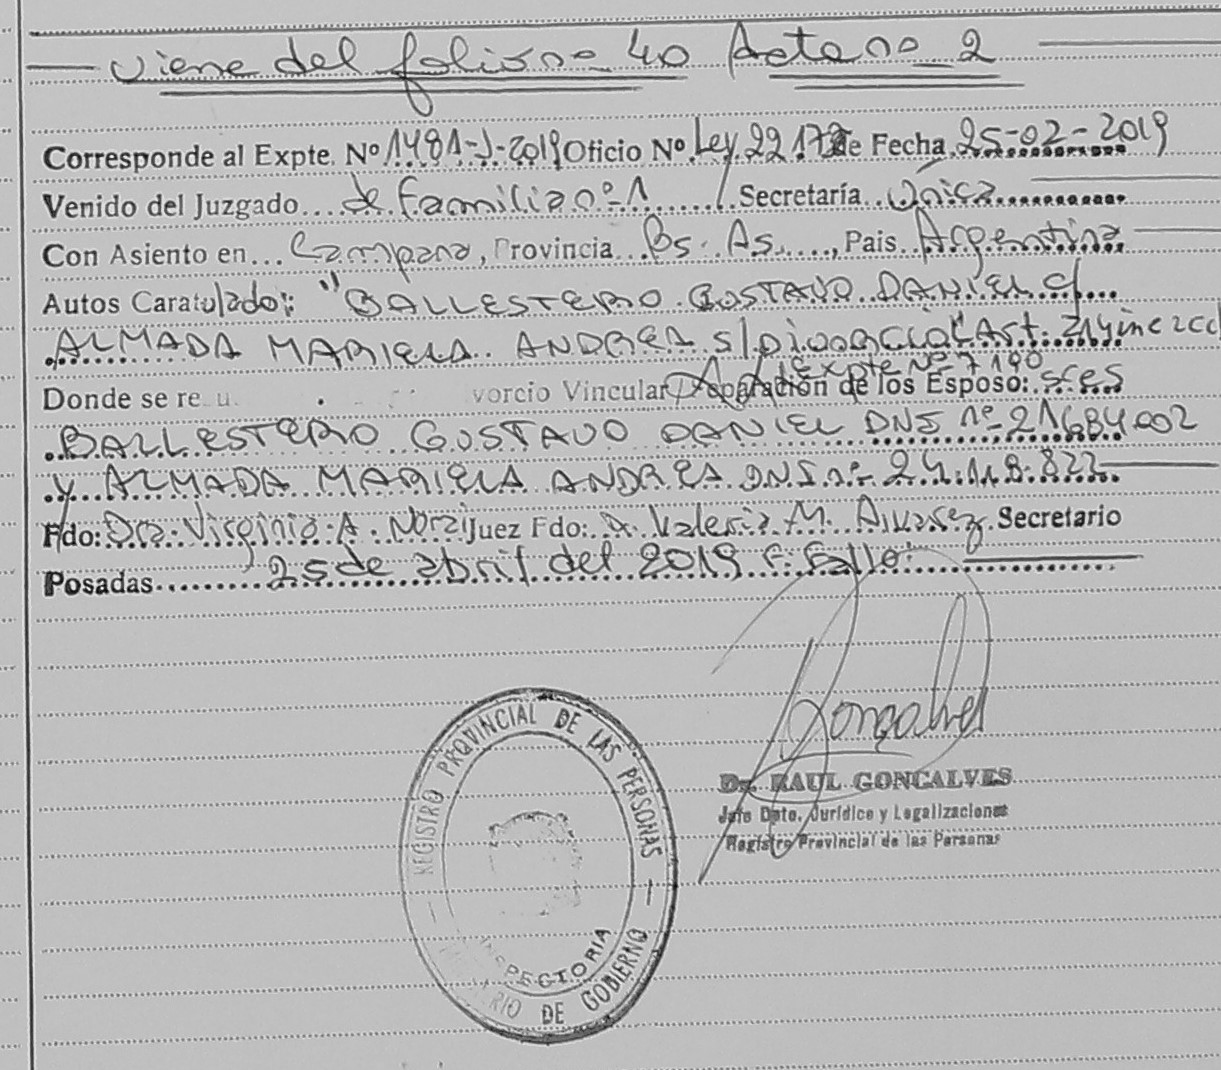 viene del folio nº 40 Acta nº 2
Corresponde al Expte. Nº 1481-J-2019 Oficio Nº Ley 22172 de Fecha 25-02-2019
Venido del Juzgado de familia nº 1 Secretaría Única
Con Asiento en Campana, Provincia Bs. As., Pais Argentina
Autos Caratulado: "BALLESTERO GUSTAVO DANIEL c/
ALMADA MARIELA ANDREA s/Divorcio" Art. 214 inc 2 CC
Expte Nº 7190
Donde se re u vorcio Vincular, Separación de los Esposo: sres
BALLESTERO GUSTAVO DANIEL DNI nº 21684002
y ALMADA MARIELA ANDREA DNI nº 24.118.822
Fdo: Dra. Virginia A. Juez Fdo: Valeria M. Alvarez Secretario
Posadas 25 de abril del 2019 F. Fallo:
Goncalves
Dr. RAUL GONCALVES
Jefe Dpto. Jurídico y Legalizaciones
Registro Provincial de las Personas
REGISTRO PROVINCIAL DE LAS PERSONAS
INSPECTORIA
RIO DE GOBIERNO